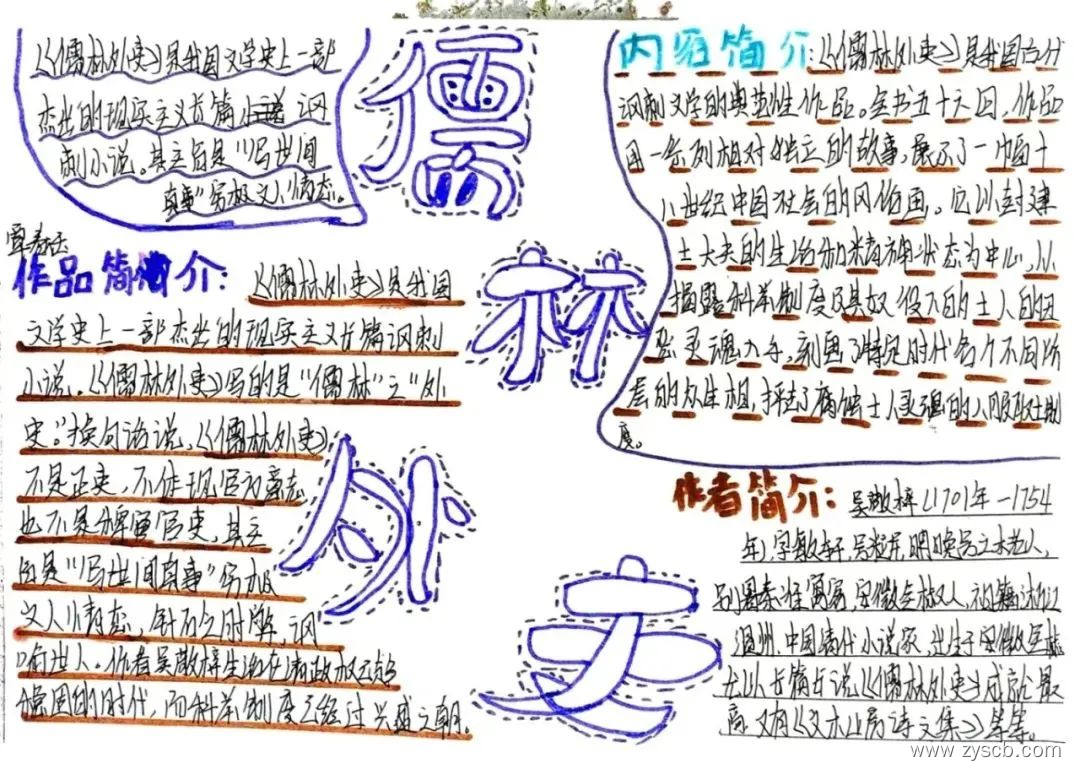 《儒林外史》是我国文学史上一部
杰出的现实主义长篇小说讽
刺小说。其主旨是"写世间
真事"穷极文人情态。
儒
林
外
史
作品简介:《儒林外史》是我国
文学史上一部杰出的现实主义长篇讽刺
小说。《儒林外史》写的是"儒林"之"外
史"。换句话说,《儒林外史》
不是正史,不使现官为意志
也不是稗官野史,其主
旨是"写世间真事"穷极
文人情态,针石之时弊,讽
喻世人。作者吴敬梓生活在清政权已趋
稳固的时代,而科举制度已经过兴盛之朝。
内容简介:《儒林外史》是我国古代
讽刺文学的典范性作品。全书五十六回,作品
由一系列相对独立的故事,展示了一幅十
八世纪中国社会的风俗画。它以封建
士大夫的生活和精神状态为中心,从
揭露科举制度及其奴役下的士人的
灵魂入手,刻画了特定时代各个不同阶
层的众生相,抨击了腐蚀士人灵魂的八股取士制
度。
作者简介:吴敬梓(1701年-1754
年),字敏轩,号粒民,晚号文木老人,
别署秦淮寓客,安徽全椒人,祖籍浙江
温州,中国清代小说家,出生于安徽全椒
长篇小说《儒林外史》成就最
高,又有《文木山房诗文集》等等。
www.zyscb.com